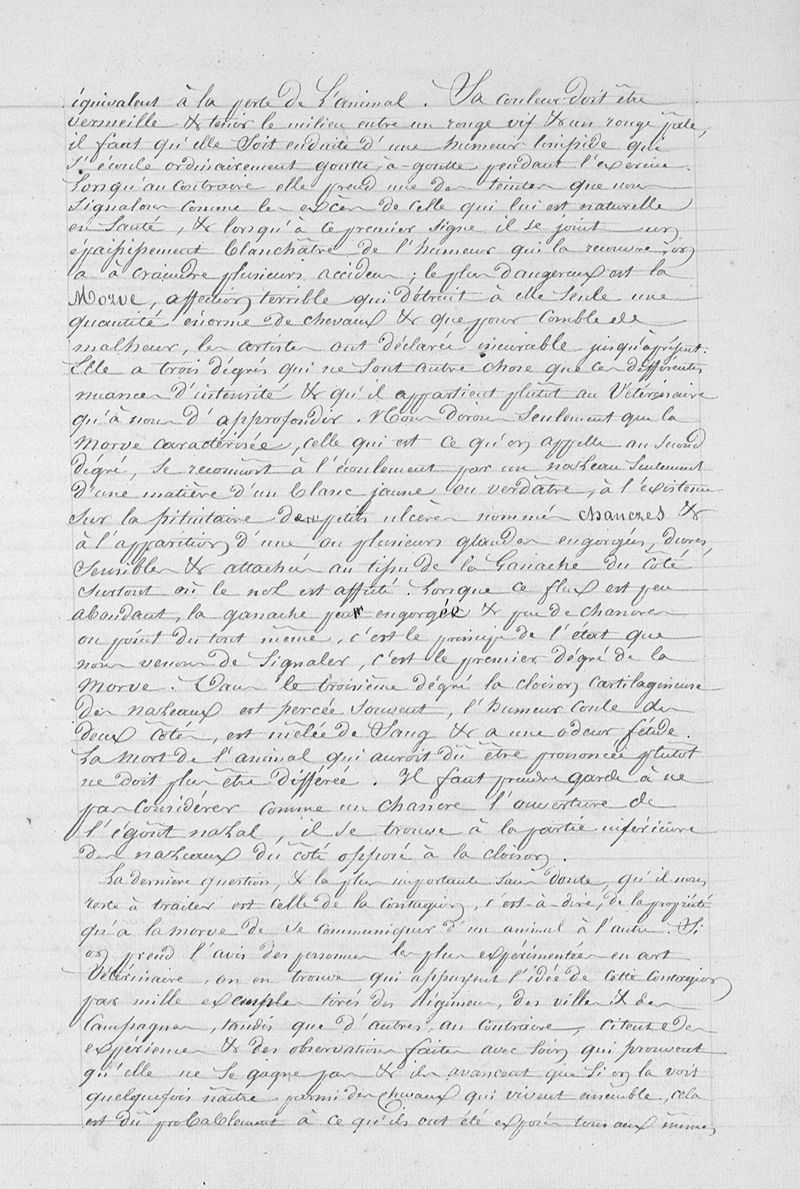 équivalent à la perte de L'animal. Sa couleur doit être
vermeille & tenir le milieu entre un rouge vif & un rouge pâle,
il faut qu'elle soit enduite d'une humeur limpide qui
s'écoule ordinairement goutte-à-goutte pendant l'exercice.
Lorsqu'au contraire elle prend une des teintes que nous
signalons comme les excès de celle qui lui est naturelle
en santé, & lorsqu'à ce premier signe il se joint un
épaississement blanchâtre de l'humeur qui la recouvre on
a à craindre plusieurs accidens; le plus dangereux est la
Morve, affection terrible qui détruit à elle seule une
quantité énorme de chevaux & que pour comble de
malheur, les artistes ont déclarée incurable jusqu'à présent.
Elle a trois dégrés qui ne sont autre chose que ces différentes
nuances d'intensité & qu'il appartient plutôt au Vétérinaire
qu'à nous d'approfondir. Nous dirons seulement que la
morve caractérisée, celle qui est ce qu'on appelle au second
dégré, se reconnort à l'écoulement par un nazeau seulement
d'une matière d'un blanc jaune ou verdâtre, à l'existence
sur la pituitaire de petits ulceres nommés chancres &
à l'apparition d'une ou plusieurs glandes engorgées, dures,
sensibles & attachées au tissu de la Ganache du côté
surtout où le nez est affecté. Lorsque ce flux est peu
abondant, la ganache peu engorgée & peu de chancres
ou point du tout même, c'est le principe de l'état que
nous venons de signaler, c'est le premier dégré de la
morve. Dans le troisième dégré la cloison cartilagineuse
des nazeaux est percée souvent, l'humeur coule des
deux côtés, est mêlée de sang & a une odeur fétide.
La mort de l'animal qui auroit dû être prononcée plutot
ne doit plus être différée. Il faut prendre garde à ne
pas considérer comme un chancre l'ouverture de
l'égoût nazal, il se trouve à la partie inférieure
des nazeaux du côté opposé à la cloison.
La dernière question, & la plus importante sans doute, qu'il nous
reste à traiter est celle de la contagion, c'est-à-dire, de la propriété
qu'a la morve de se communiquer d'un animal à l'autre. Si
on prend l'avis des personnes les plus expérimentées en art
Vétérinaire, on en trouve qui appuyent l'idée de cette contagion
par mille exemples tirés des Régimens, des villes & des
Campagnes, tandis que d'autres, au contraire, citent des
expériences & des observations faites avec soin qui prouvent
qu'elle ne se gagne pas & ils avancent que si on la voit
quelquefois naître parmi des chevaux qui vivent ensemble, cela
est dû probablement à ce qu'ils ont été exposés tous aux mêmes